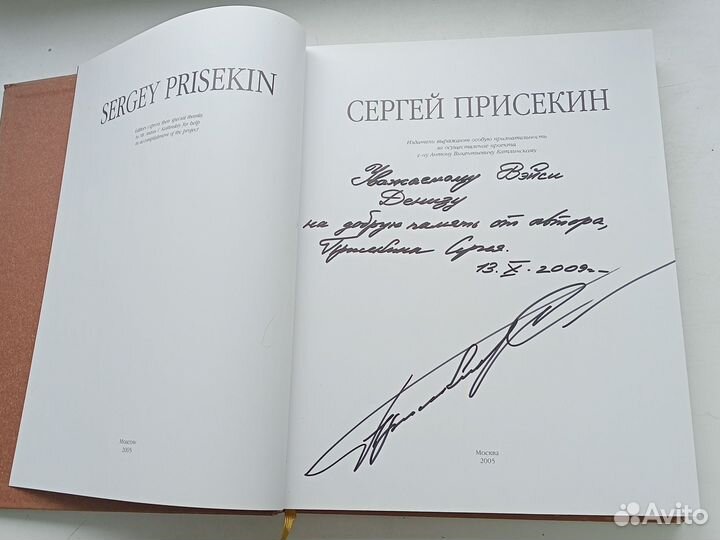 SERGEY PRISEKIN
Editors express their special thanks
to Mr. Anton V. Katlinsky for help
in accomplishment of the project
Moscow
2005
СЕРГЕЙ ПРИСЕКИН
Издатели выражают особую признательность
за осуществление проекта
г-ну Антону Викентьевичу Катлинскому
Уважаемому Вэйси
Денизу
на добрую память от автора,
Присекина Сергея.
13.X.2009г
Москва
2005
Avito